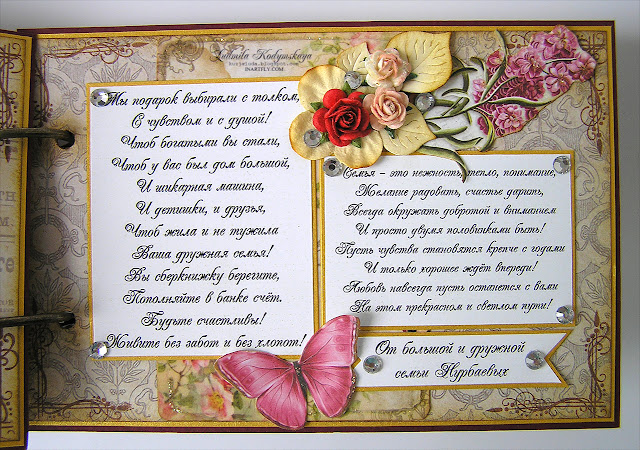 Ludmila Kodymskaya
INARTFLY.COM
Мы подарок выбирали с толком,
С чувством и с душой!
Чтоб богатыми вы стали,
Чтоб у вас был дом большой,
И шикарная машина,
И детишки, и друзья,
Чтоб жила и не тужила
Ваша дружная семья!
Вы сберкнижку берегите,
Пополняйте в банке счёт.
Будьте счастливы!
Живите без забот и без хлопот!
Семья – это нежность, тепло, понимание,
Желание радовать, счастье дарить,
Всегда окружать добротой и вниманием
И просто двумя половинками быть!
Пусть чувства становятся крепче с годами
И только хорошее ждёт впереди!
Любовь навсегда пусть останется с вами
На этом прекрасном и светлом пути!
От большой и дружной
семьи Нурбаевых